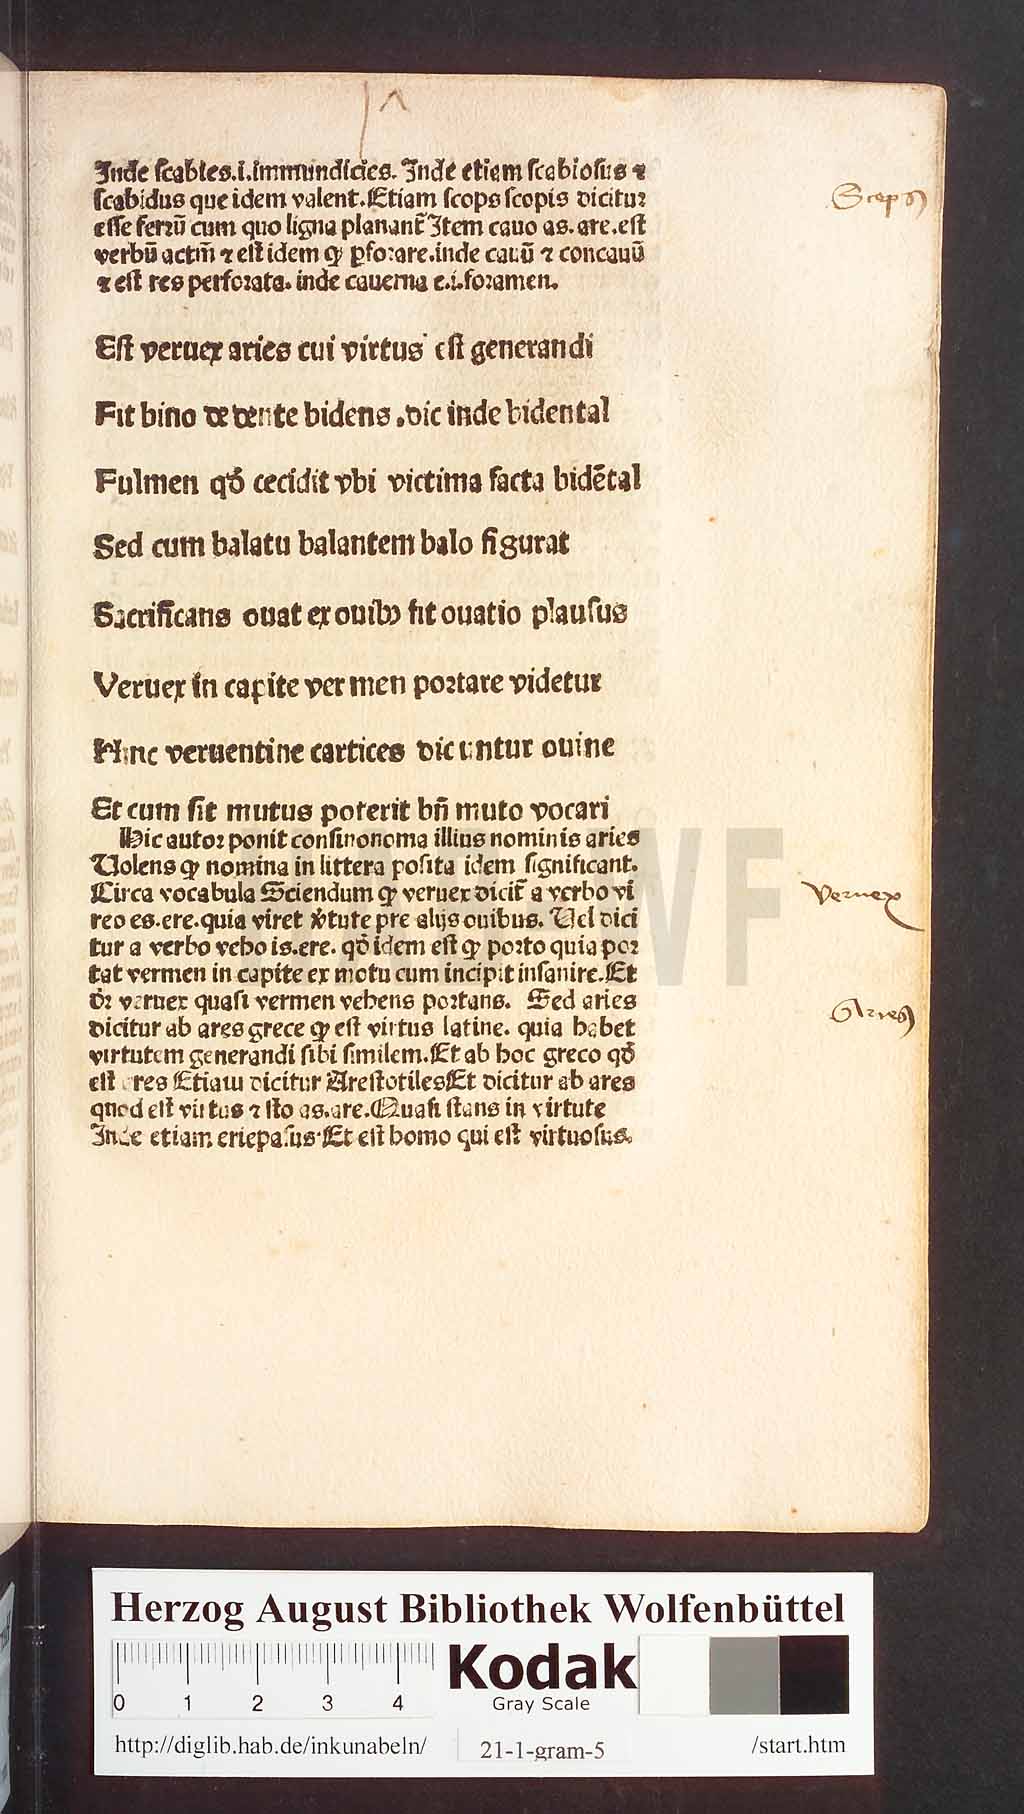 Inde scabies.i.immundicies. Inde etiam scabiosus ⁊
scabidus que idem valent.Etiam scops scopis dicitur
esse ferrū cum quo ligna planant᷑ Item cauo as.are.est
verbū actiū ⁊ est idem ꝙ ꝑforare.inde cauū ⁊ concauū
⁊ est res perforata. inde cauerna e.i.foramen.
Est veruex aries cui virtus est generandi
Fit bino de dente bidens .dic inde bidental
Fulmen qđ cecidit vbi victima facta bidētal
Sed cum balatu balantem balo figurat
Sacrificans ouat ex ouibꝫ fit ouatio plausus
Veruex in capite vermen portare videtur
Hinc veruentine cartices dicuntur ouine
Et cum sit mutus poterit bn̄ muto vocari
Hic autor ponit consinonoma illius nominis aries
Volens ꝙ nomina in littera posita idem significant.
Circa vocabula Sciendum ꝙ veruex dicit᷑ a verbo vi
reo es.ere.quia viret v̓tute pre alijs ouibus. Vel dici
tur a verbo veho is.ere. qđ idem est ꝙ porto quia por
tat vermen in capite ex motu cum incipit insanire.Et
dr̄ veruex quasi vermen vehens portans. Sed aries
dicitur ab ares grece ꝙ est virtus latine. quia habet
virtutem generandi sibi similem.Et ab hoc greco qđ
est eres Etiam dicitur ArestotilesEt dicitur ab ares
quod est virtus ⁊ sto as.are.Quasi stans in virtute
Inde etiam eriepasus.Et est homo qui est virtuosus.
Scops
Veruex
Aries
HAB WF
Herzog August Bibliothek Wolfenbüttel
0 1 2 3 4
Kodak
Gray Scale
http://diglib.hab.de/inkunabeln/
21-1-gram-5
/start.htm